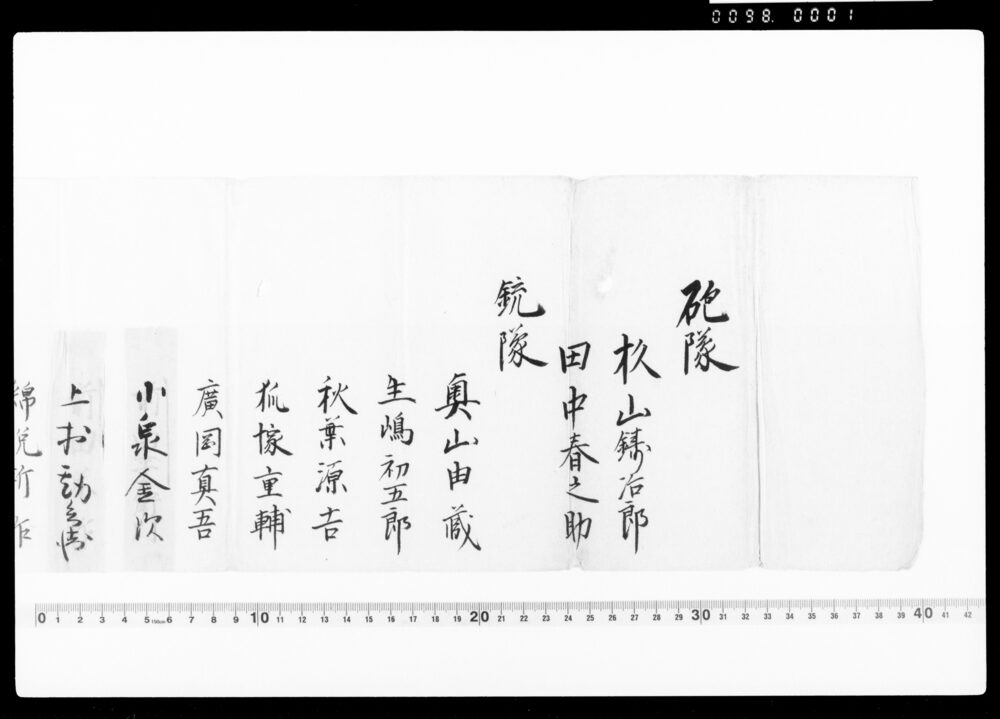 0098. 0001
砲隊
杉山鋳治郎
田中春之助
銃隊
奥山由蔵
生嶋初五郎
秋葉源吉
狐塚重輔
廣岡真吾
小泉金次
上村勘兵衛
綿

0 1 2 3 4 5 150cm 6 7 8 9 10 11 12 13 14 15 16 17 18 19 20 21 22 23 24 25 26 27 28 29 30 31 32 33 34 35 36 37 38 39 40 41 42